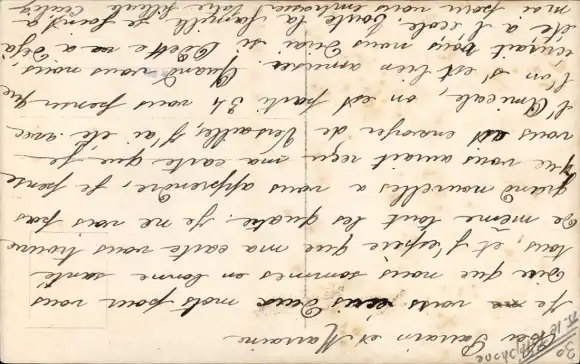 Parrain et Marraine
Je vous écris deux mots pour vous
dire que nous sommes en bonne santé
tous, et j'espère que ma carte vous trouve
de même tout les quatre. Je ne vois pas
grand nouvelles a vous apprendre, je pense
que vous aurait reçu ma carte que je
vous ai envoyer de Versailles, j'ai été avec
l'Amicale, on est parti 34 vous penser que
l'on s'est bien amusée. Quand vous nous
écrirait vous nous dirai si Odette a déjà
été a l'école. Toute la famille se joint a
moi pour vous embrasser. Votre filleule Cécile